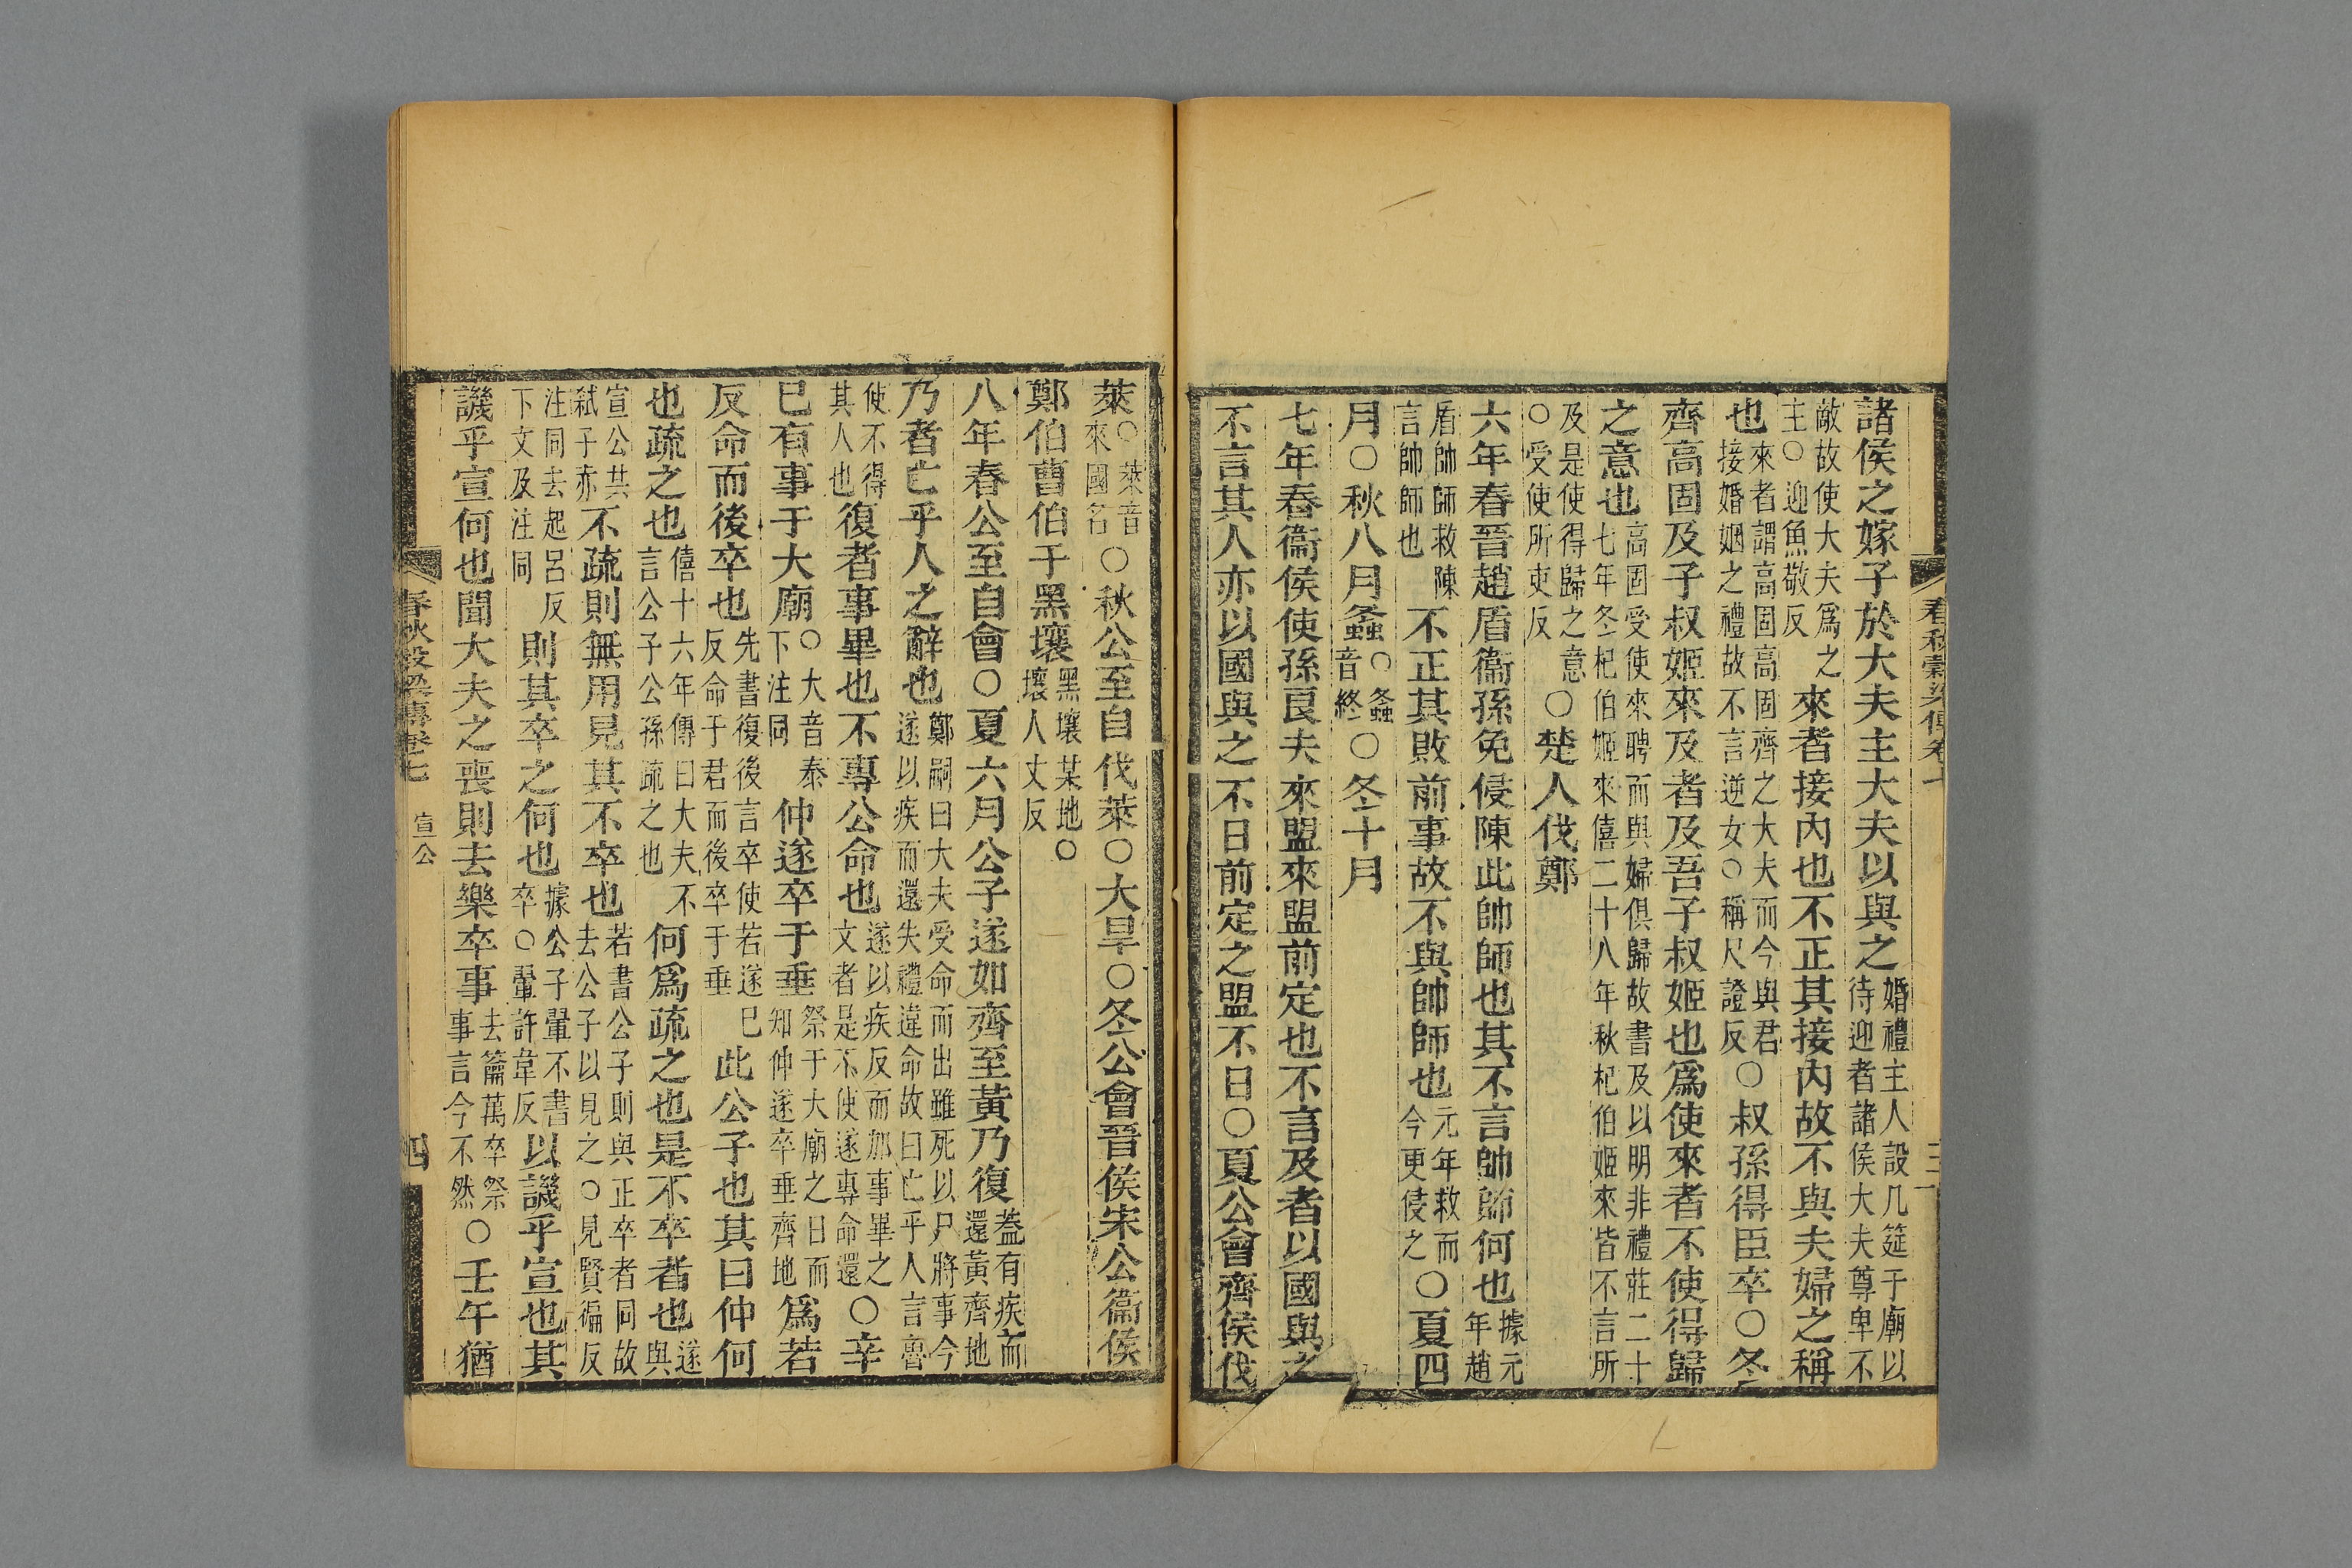 諸侯之嫁子於大夫主大夫以與之婚禮主人設几筵于廟以待迎者諸侯大夫尊卑不
敵故使大夫爲之主○迎魚敬反來者接內也不正其接內故不與夫婦之稱
也來者謂高固高固齊之大夫而今與君接婚姻之禮故不言逆女○稱尺證反○叔孫得臣卒○冬
齊高固及子叔姬來及者及吾子叔姬也爲使來者不使得歸
之意也高固受使來聘而與婦俱歸故書及以明非禮莊二十七年冬杞伯姬來僖二十八年秋杞伯姬來皆不言所
及是使得歸之意○受使所吏反○楚人伐鄭
六年春晉趙盾衞孫免侵陳此帥師也其不言帥師何也據元年趙
盾帥師救陳言帥師也不正其敗前事故不與帥師也元年救而今更侵之○夏四
月○秋八月螽○螽音終○冬十月
七年春衞侯使孫良夫來盟來盟前定也不言及者以國與之
不言其人亦以國與之不日前定之盟不日○夏公會齊侯伐
春秋穀梁傳卷七
三
萊○萊音來國名○秋公至自伐萊○大旱○冬公會晉侯宋公衞侯
鄭伯曹伯于黑壤黑壤某地○壤人丈反
八年春公至自會○夏六月公子遂如齊至黃乃復蓋有疾而還黃齊地
乃者亡乎人之辭也鄭嗣曰大夫受命而出雖死以尸將事今遂以疾而還失禮違命故曰亡乎人言魯
使不得其人也復者事畢也不專公命也遂以疾反而加事畢之文者是不使遂專命還○辛
巳有事于大廟○大音泰下注同仲遂卒于垂祭于大廟之日而知仲遂卒垂齊地爲若
反命而後卒也先書復後言卒使若遂已反命于君而後卒于垂此公子也其曰仲何
也疏之也僖十六年傳曰大夫不言公子公孫疏之也何爲疏之也是不卒者也遂與
宣公共弒子亦不疏則無用見其不卒也若書公子則與正卒者同故去公子以見之○見賢徧反
注同去起呂反下文及注同則其卒之何也據公子翬不書卒○翬許韋反以譏乎宣也其
譏乎宣何也聞大夫之喪則去樂卒事去籥萬卒祭事言今不然○壬午猶
春秋穀梁傳卷七
宣公
四